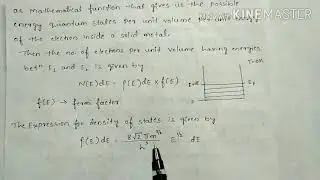 as mathematical function that gives us the possible
energy quantum states per unit volume
of the electron inside a solid metal.
Then the no. of electrons per unit volume having energies
betⁿ E₁ and E₂ is given by
N(E)dE = ρ(E)dE × f(E)
f(E) → fermi factor
The Expression for density of states is given by
ρ(E)dE = 8√2 πm^3/2 / h³ E^1/2 dE
KINEMASTER